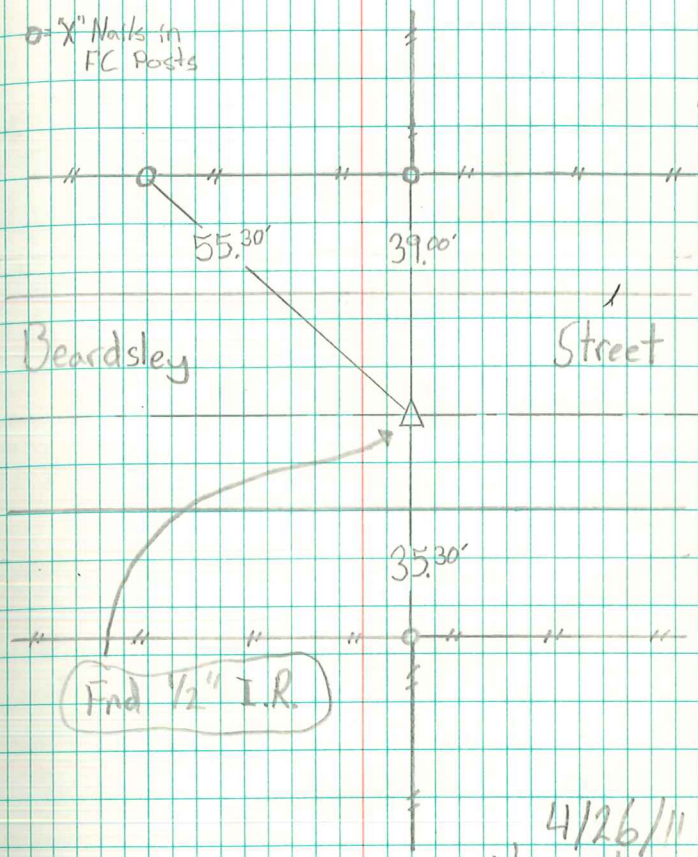 o= "X" Nails in
FC Posts
55.30'
39.00'
Beardsley Street
35.30'
Fnd 1/2" I.R.
4/26/11